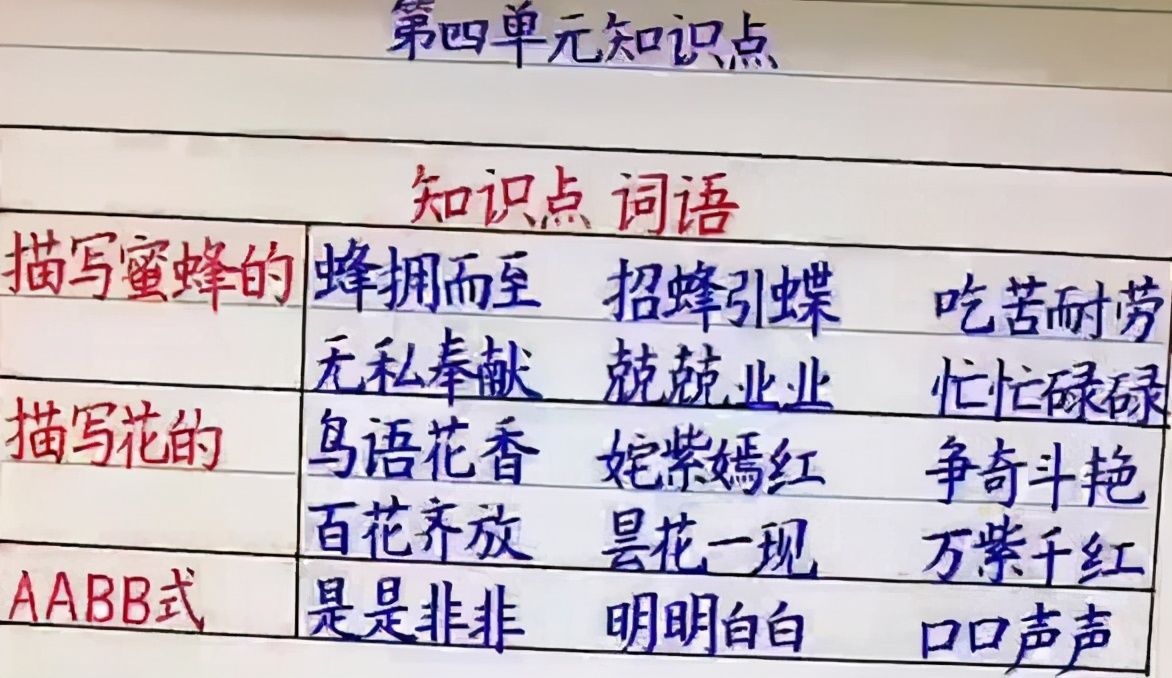 第四单元知识点
知识点 词语
描写蜜蜂的 蜂拥而至 招蜂引蝶 吃苦耐劳
无私奉献 兢兢业业 忙忙碌碌
描写花的 鸟语花香 姹紫嫣红 争奇斗艳
百花齐放 昙花一现 万紫千红
AABB式 是是非非 明明白白 口口声声